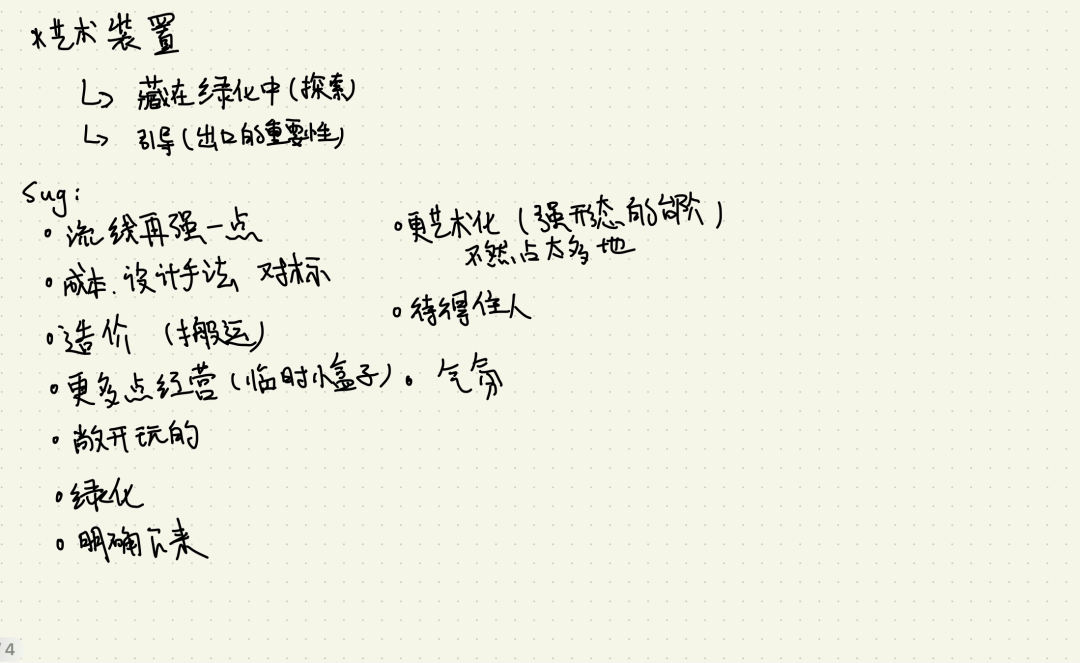 *艺术装置
↳ 藏在绿化中(探索)
↳ 引导(出口的重要性)
Sug:
• 流线再强一点
• 成本.设计手法 对标
• 造价 (搬运)
• 更多点经营(临时小盒子)
• 敞开玩的
• 绿化
• 明确下来
• 更艺术化 (强形态的台阶)
不然占太多地
• 待得住人
• 气氛
/4